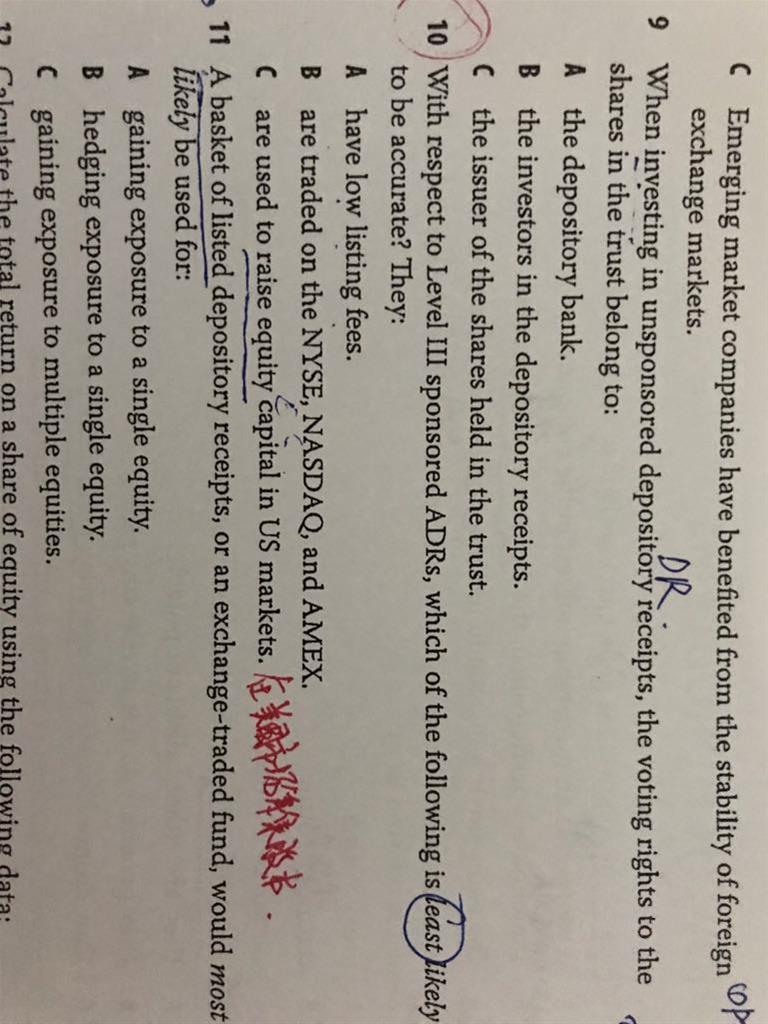 C Emerging market companies have benefited from the stability of foreign
exchange markets.
9 When investing in unsponsored depository receipts, the voting rights to the
DR.
shares in the trust belong to:
A the depository bank.
B the investors in the depository receipts.
C the issuer of the shares held in the trust.
10 With respect to Level III sponsored ADRs, which of the following is least likely
to be accurate? They:
A have low listing fees.
B are traded on the NYSE, NASDAQ, and AMEX.
C are used to raise equity capital in US markets.
11 A basket of listed depository receipts, or an exchange-traded fund, would most
likely be used for:
A gaining exposure to a single equity.
B hedging exposure to a single equity.
C gaining exposure to multiple equities.
12 Calculate the total return on a share of equity using the following data: